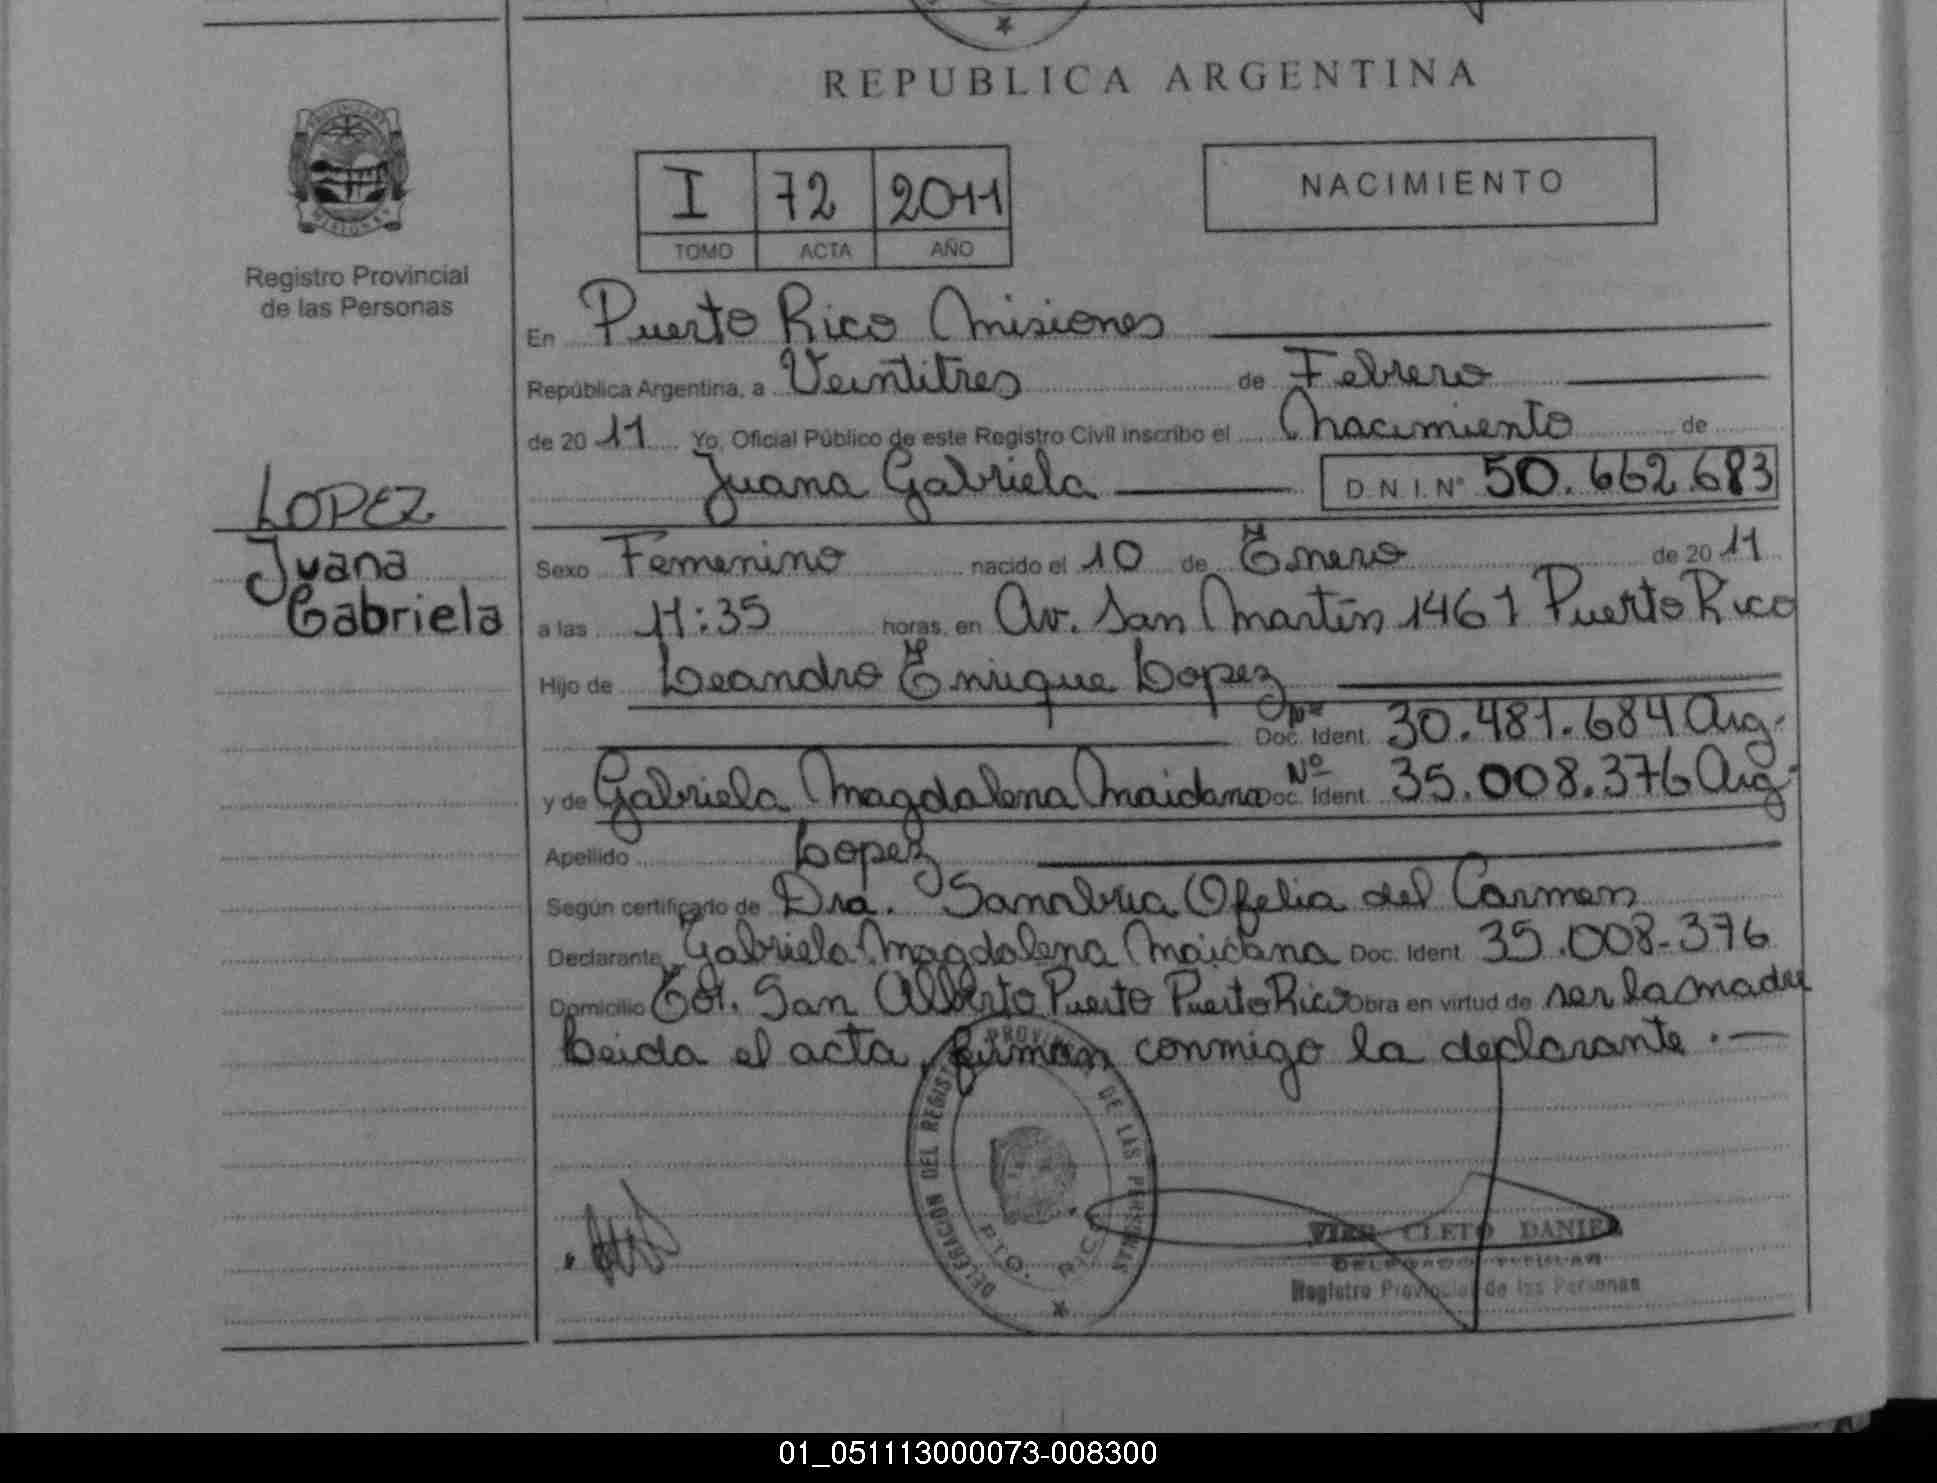 REPUBLICA ARGENTINA
PROVINCIA DE
MISIONES
Registro Provincial
de las Personas
I 72 2011
TOMO ACTA AÑO
NACIMIENTO
En Puerto Rico Misiones
República Argentina, a Veintitres de Febrero
de 2011 Yo, Oficial Público de este Registro Civil inscribo el Nacimiento de
Juana Gabriela D.N.I. Nº 50.662.683
LOPEZ
Juana
Gabriela
Sexo Femenino nacido el 10 de Enero de 2011
a las 11:35 horas, en Av. San Martín 1461 Puerto Rico
Hijo de Leandro Enrique Lopez
Nº Doc. Ident. 30.481.684 Arg.
y de Gabriela Magdalena Maidana Nº Doc. Ident. 35.008.376 Arg.
Apellido Lopez
Según certificado de Dra. Sanabria Ofelia del Carmen
Declarante Gabriela Magdalena Maidana Doc. Ident. 35.008.376
Domicilio Col. San Alberto Puerto Puerto Rico Obra en virtud de ser la madre
Leida el acta, firman conmigo la declarante.
DELEGACION DEL REGISTRO PROVINCIAL DE LAS PERSONAS
PTO. RICO
CLETO DANIEL
DELEGADO TITULAR
Registro Provincial de las Personas
01_051113000073-008300